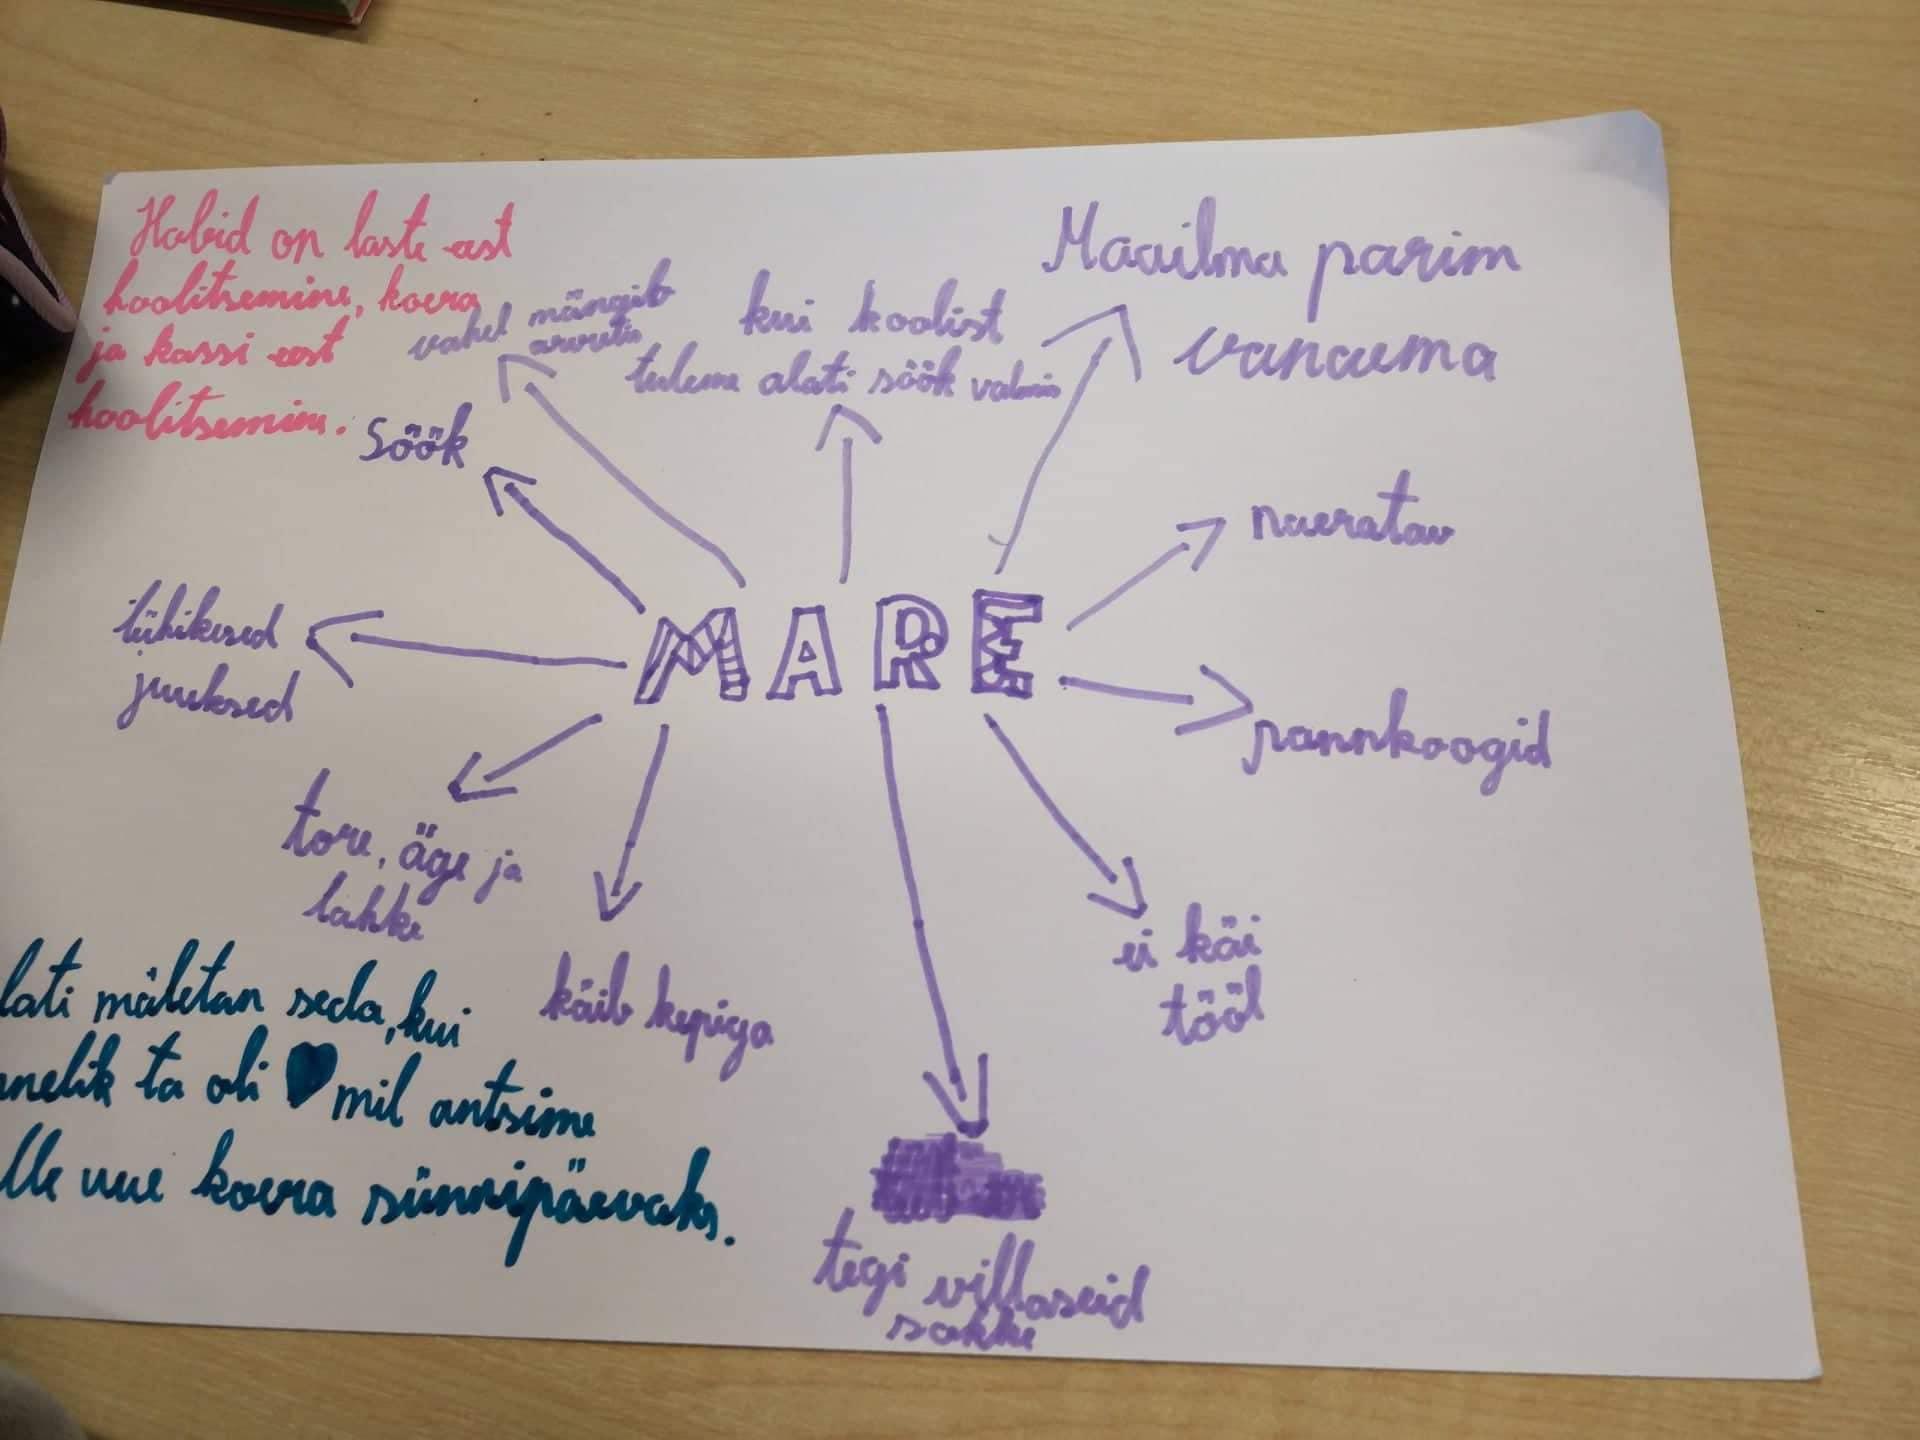 Hobid on laste eest
hoolitsemine, koera
ja kassi eest
hoolitsemine.
vahel mängib
arvutis
kui koolist
tuleme alati söök valmis
Maailma parim
vanaema
söök
naeratav
lühikesed
juuksed
MARE
pannkoogid
tore, äge ja
lahke
käib kepiga
ei käi
tööl
tegi villaseid
sokke
lati mäletan seda, kui
nnelik ta oli mil antsime
lle uue koera sünnipäevaks.